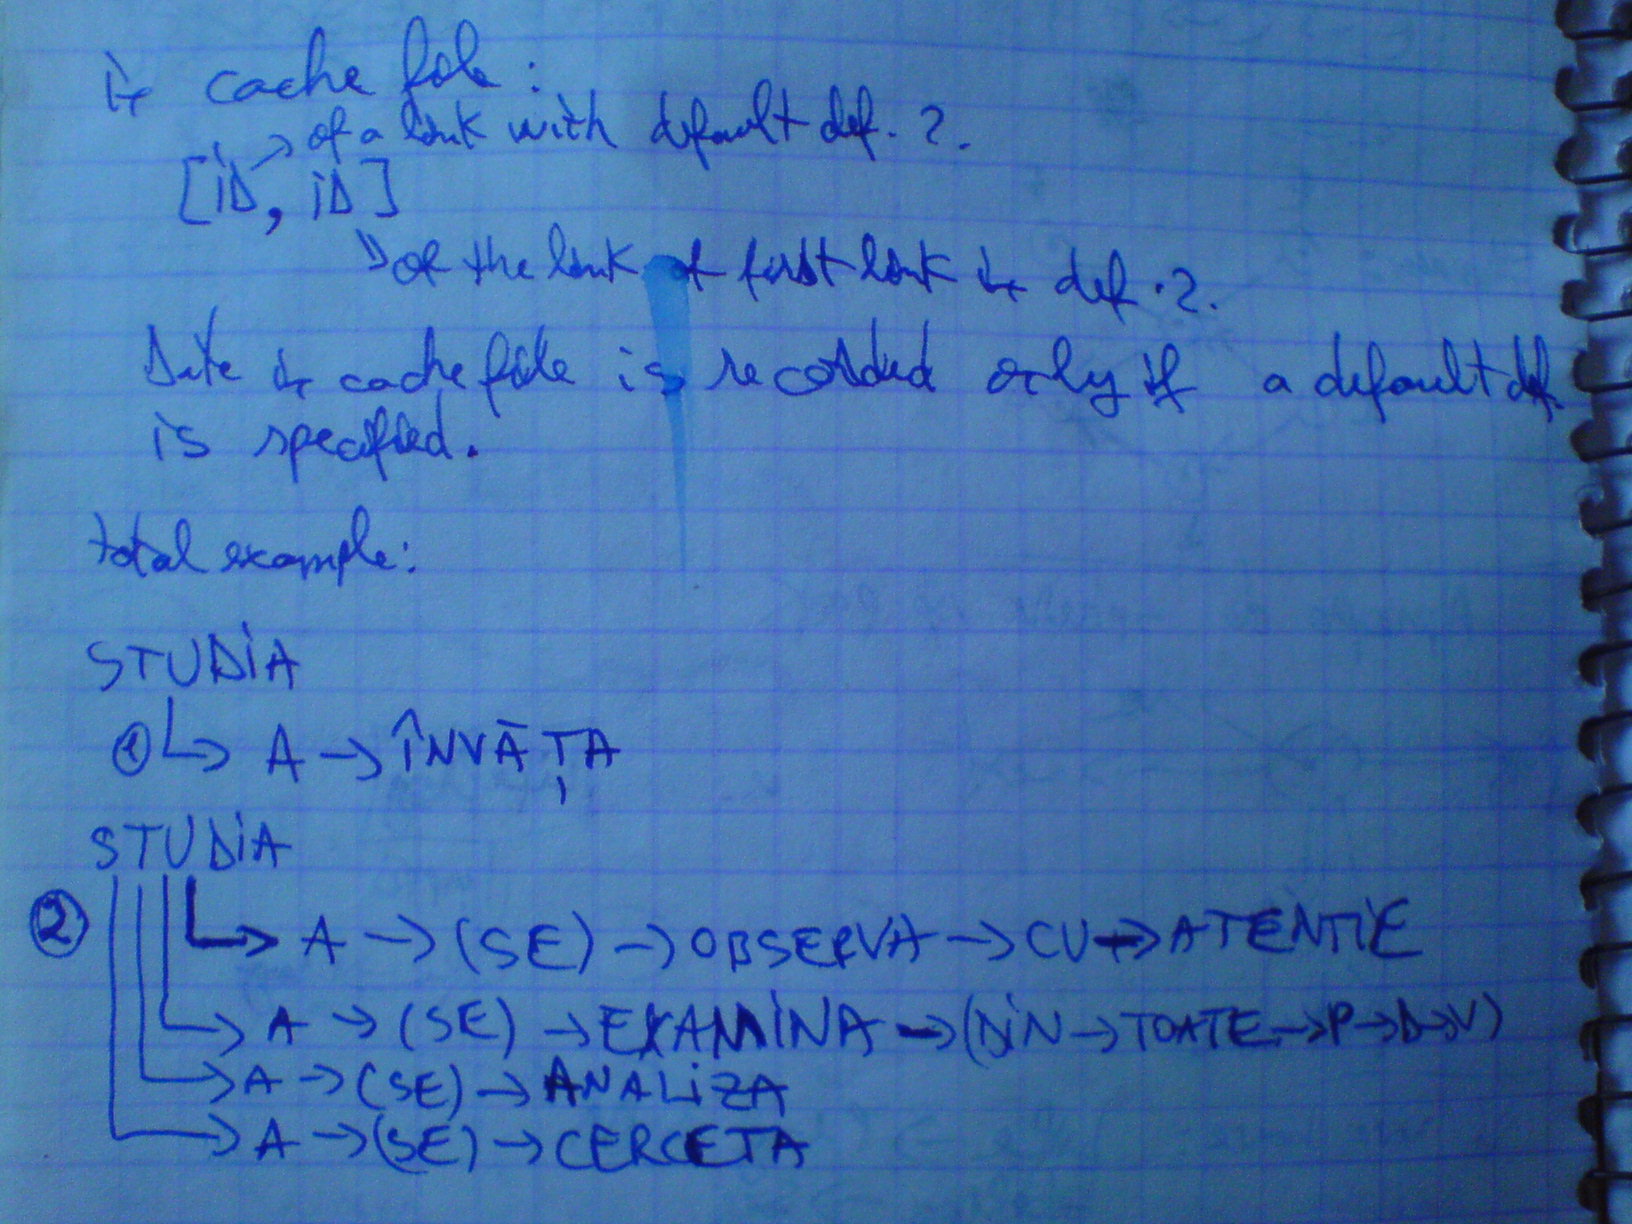 in cache file:
of a link with default def. 2.
[iD, iD]
of the link of first link in def. 2.
Date in cache file is recorded only if a default def.
is specified.
total example:
STUDiA
1 A → ÎNVĂȚA
STUDiA
2 A → (SE) → OBSERVA → CU → ATENTIE
A → (SE) → EXAMINA → (DiN → TOATE → P → D → V)
A → (SE) → ANALiZA
A → (SE) → CERCETA